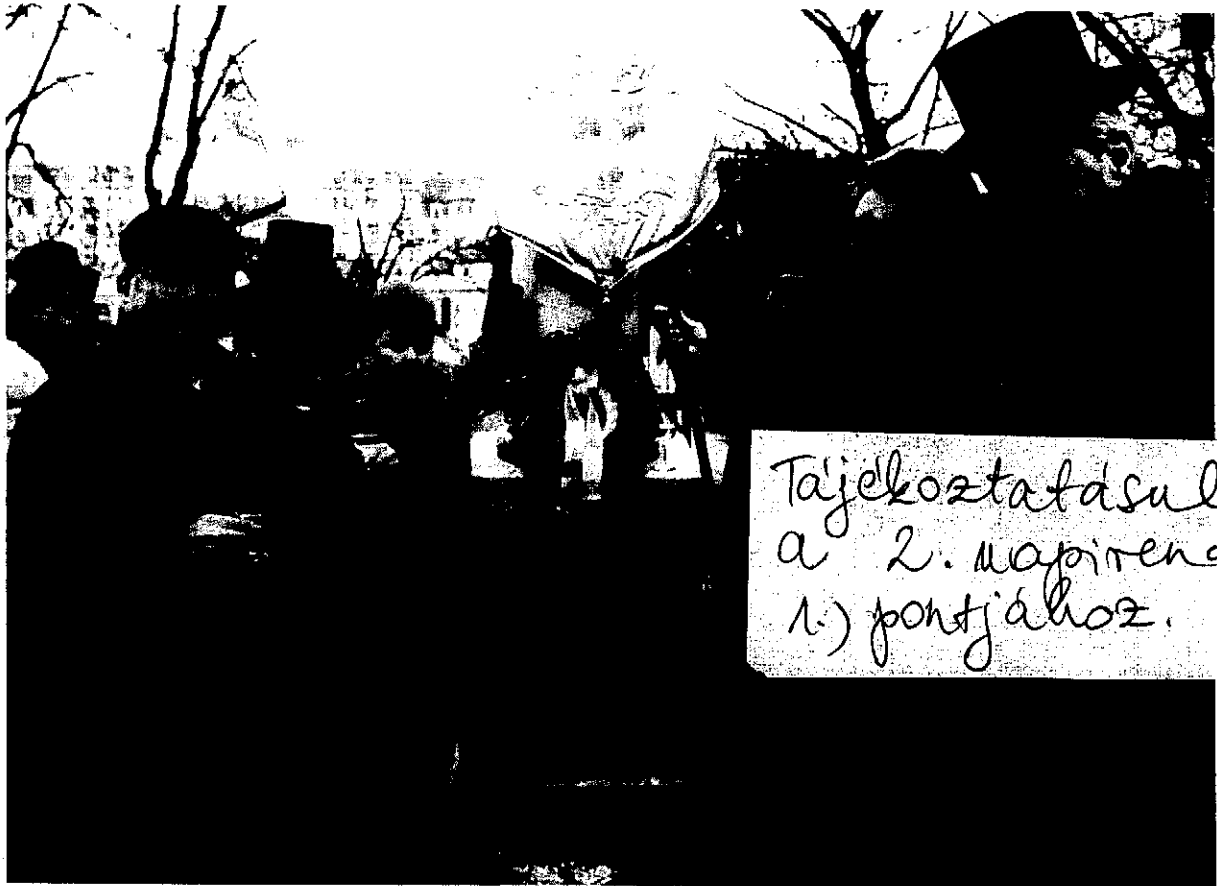 Tájékoztatásul
a 2. napirend
1.) pontjához.